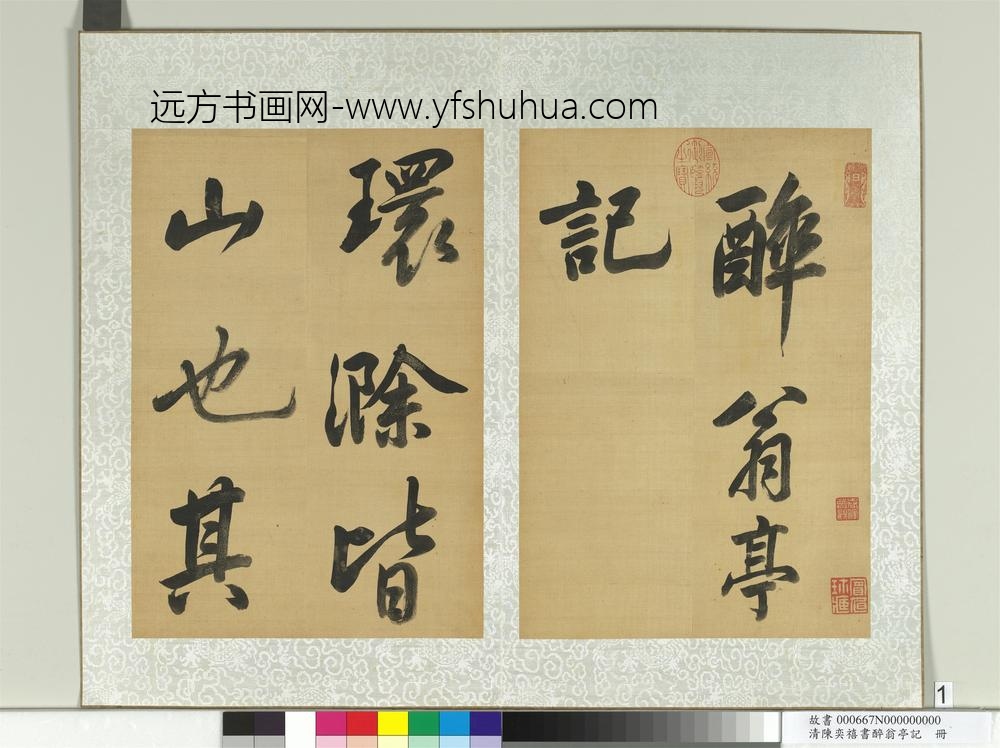 远方书画网-www.yfshuhua.com
醉翁亭
記
環滁皆
山也其
1
故書 000667N000000000
清陳奕禧書醉翁亭記 冊